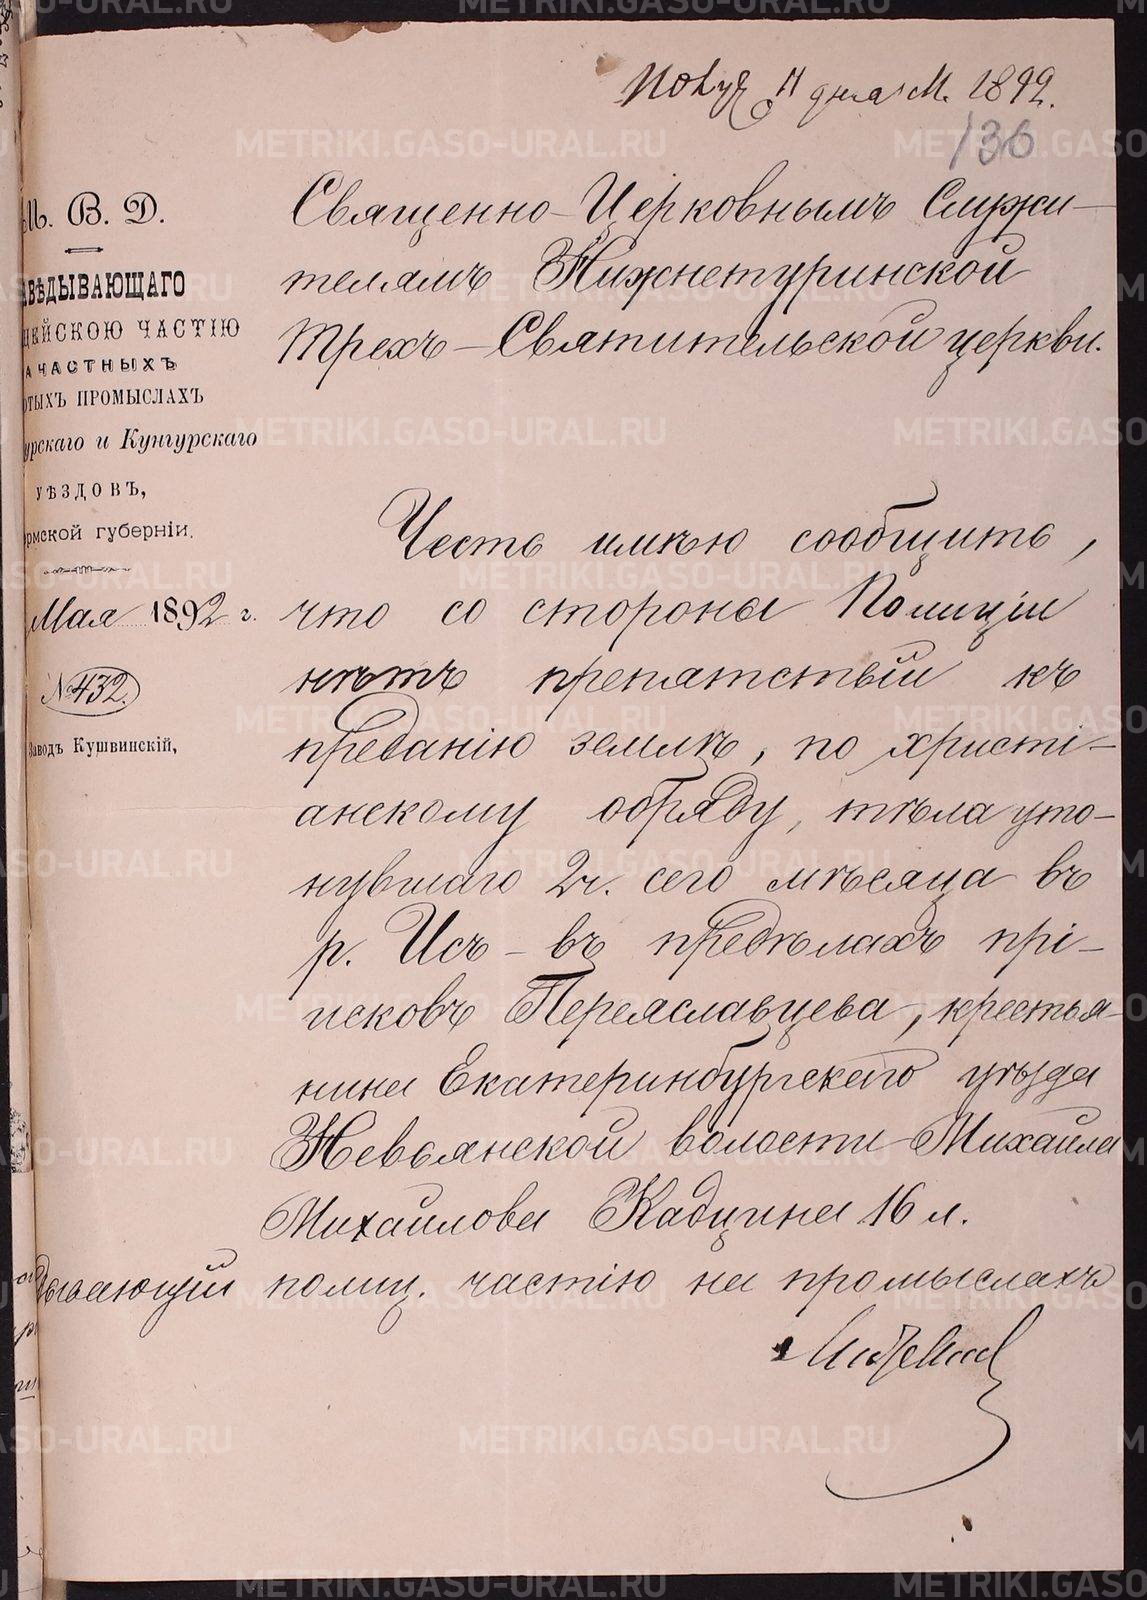 1892.
136
М. В. Д.
ВѢДЫВАЮЩАГО
ЦЕЙСКОЮ ЧАСТІЮ
А ЧАСТНЫХЪ
ОТЫХЪ ПРОМЫСЛАХЪ
урскаго и Кунгурскаго
УѢЗДОВЪ,
рмской губерніи.
Мая 1892 г.
№ 432.
Заводъ Кушвинскій,
Священно-Церковнымъ Служи-
телямъ Нижнетуринской
Трехъ-Святительской церкви.
Честь имѣю сообщить,
что со стороны Полиціи
нѣтъ препятствій къ
преданію землѣ, по христі-
анскому обряду, тѣла уто-
нувшаго 2ч. сего мѣсяца въ
р. Исъ - въ предѣлахъ прі-
исковъ Переяславцева, крестья-
нина Екатеринбургскаго уѣзда
Невьянской волости Михаила
Михаилова Кадцина 16 л.
дывающій полиц. частію на промыслахъ
METRIKI.GASO-URAL.RU